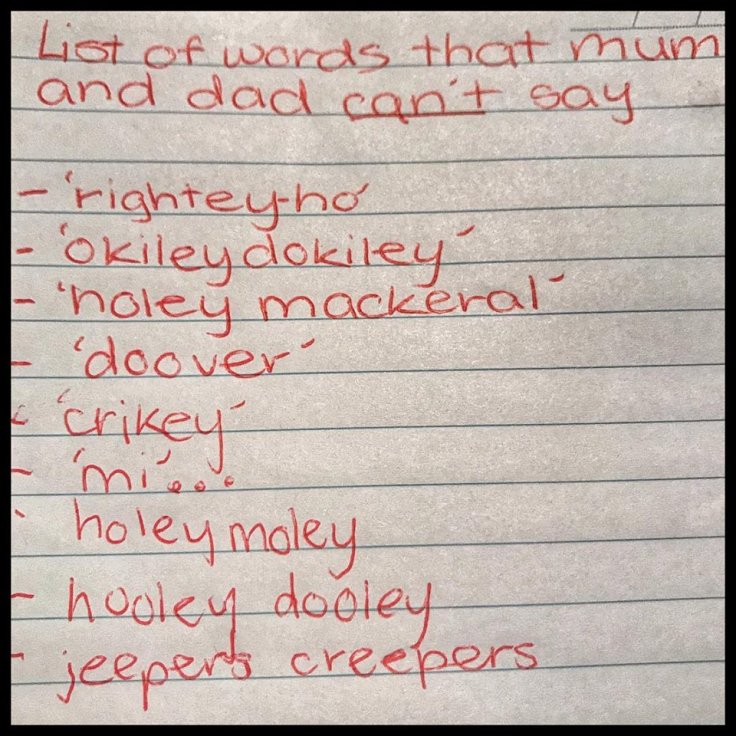 List of words that mum
and dad can't say
- 'rightey-ho'
- 'okiley dokiley'
- 'holey mackeral'
- 'doover'
- 'crikey'
- 'mi'...
- holey moley
- hooley dooley
- jeepers creepers